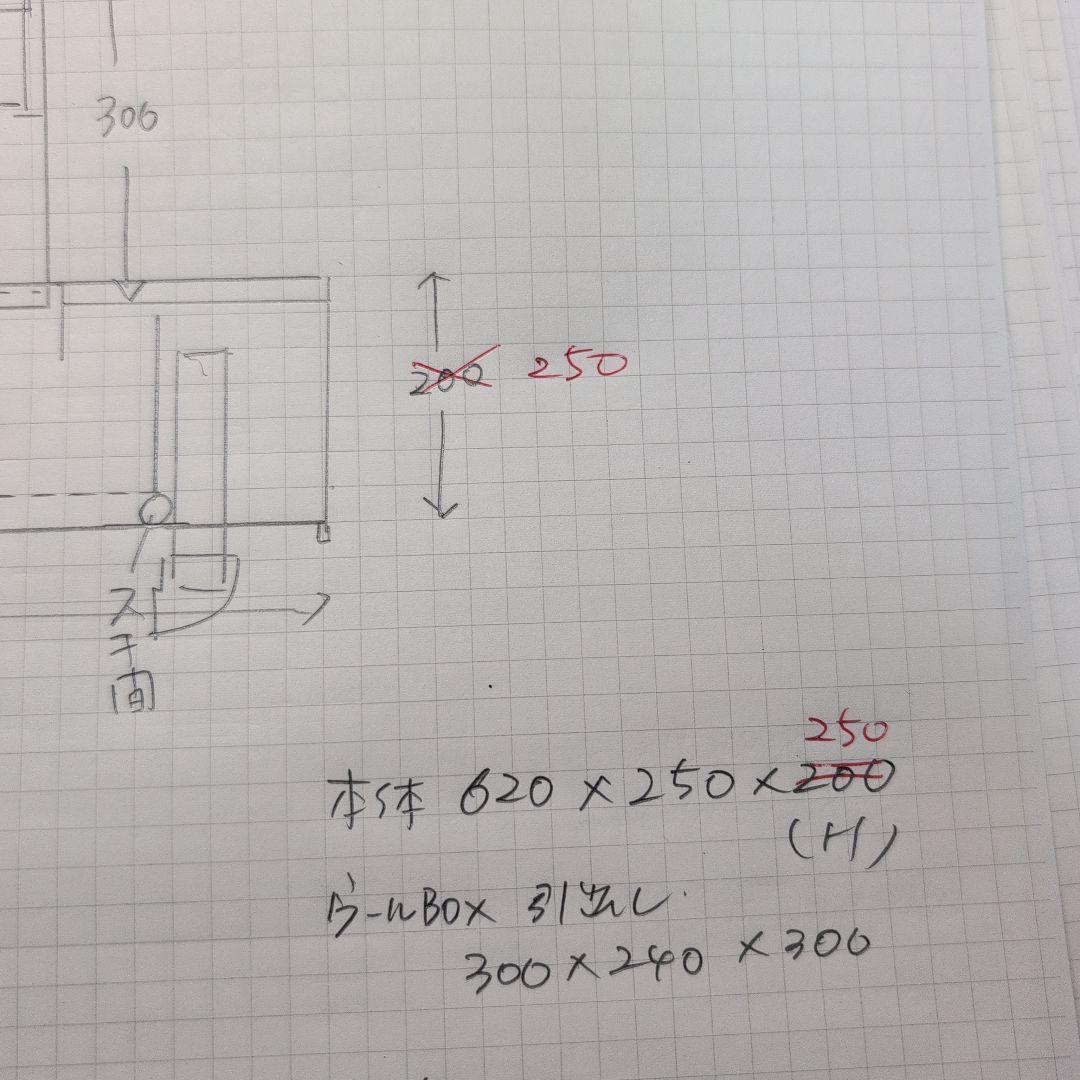 300
200 250
ス
テ
間
250
本体 620 × 250 × 200
(H)
ダールBOX 引出し
300 × 240 × 300